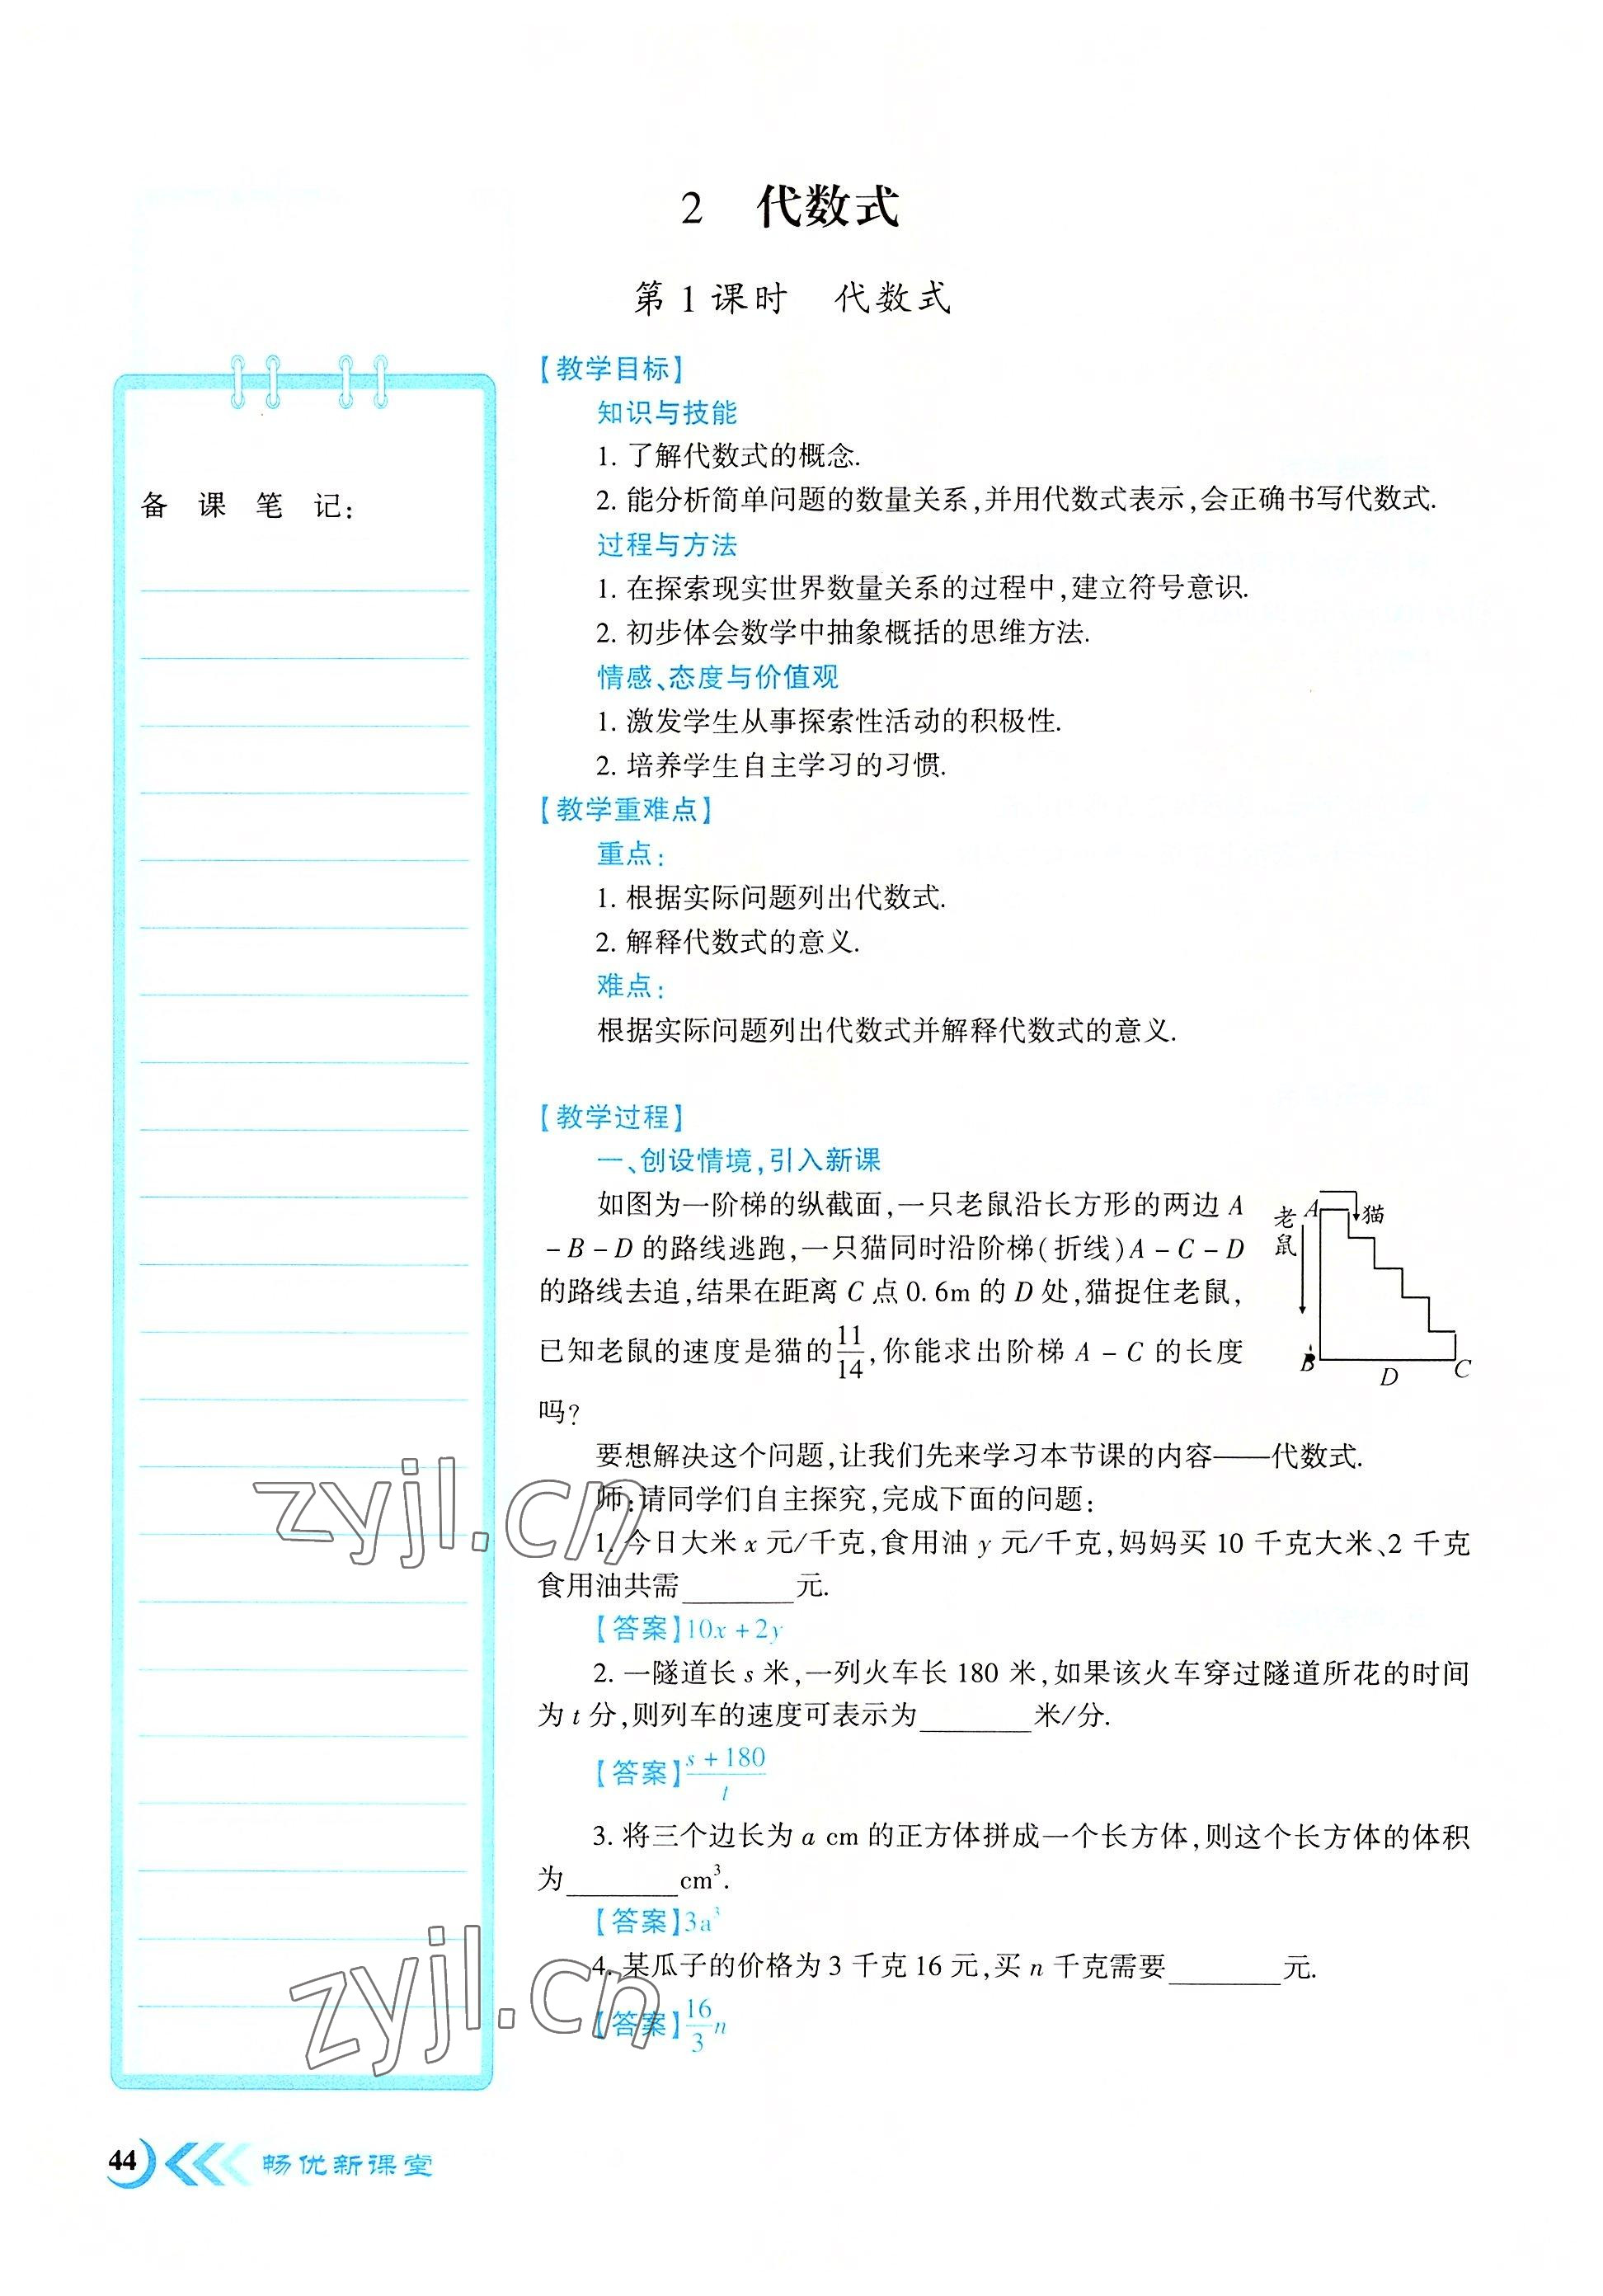 2 代数式
第1课时 代数式
备 课 笔 记:
【教学目标】
知识与技能
1. 了解代数式的概念.
2. 能分析简单问题的数量关系,并用代数式表示,会正确书写代数式.
过程与方法
1. 在探索现实世界数量关系的过程中,建立符号意识.
2. 初步体会数学中抽象概括的思维方法.
情感、态度与价值观
1. 激发学生从事探索性活动的积极性.
2. 培养学生自主学习的习惯.
【教学重难点】
重点:
1. 根据实际问题列出代数式.
2. 解释代数式的意义.
难点:
根据实际问题列出代数式并解释代数式的意义.
【教学过程】
一、创设情境,引入新课
如图为一阶梯的纵截面,一只老鼠沿长方形的两边 A
-B-D 的路线逃跑,一只猫同时沿阶梯(折线)A-C-D
的路线去追,结果在距离 C 点 0.6m 的 D 处,猫捉住老鼠,
已知老鼠的速度是猫的 11/14,你能求出阶梯 A-C 的长度
吗?
老鼠
A
猫
B
D
C
要想解决这个问题,让我们先来学习本节课的内容——代数式.
师:请同学们自主探究,完成下面的问题:
1. 今日大米 x 元/千克,食用油 y 元/千克,妈妈买 10 千克大米、2 千克
食用油共需________元.
【答案】10x+2y
2. 一隧道长 s 米,一列火车长 180 米,如果该火车穿过隧道所花的时间
为 t 分,则列车的速度可表示为________米/分.
【答案】(s+180)/t
3. 将三个边长为 a cm 的正方体拼成一个长方体,则这个长方体的体积
为________cm³.
【答案】3a³
4. 某瓜子的价格为 3 千克 16 元,买 n 千克需要________元.
【答案】16/3 n
zyjl.cn
zyjl.cn
44 畅优新课堂